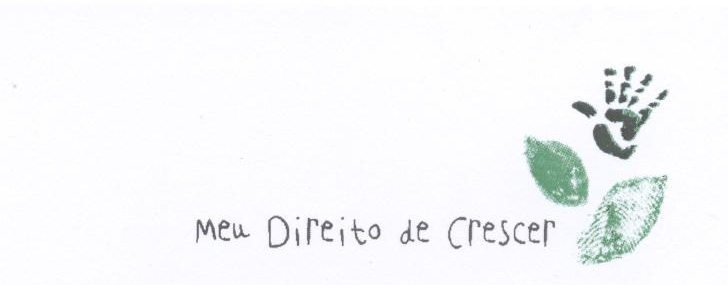 Meu Direito de Crescer